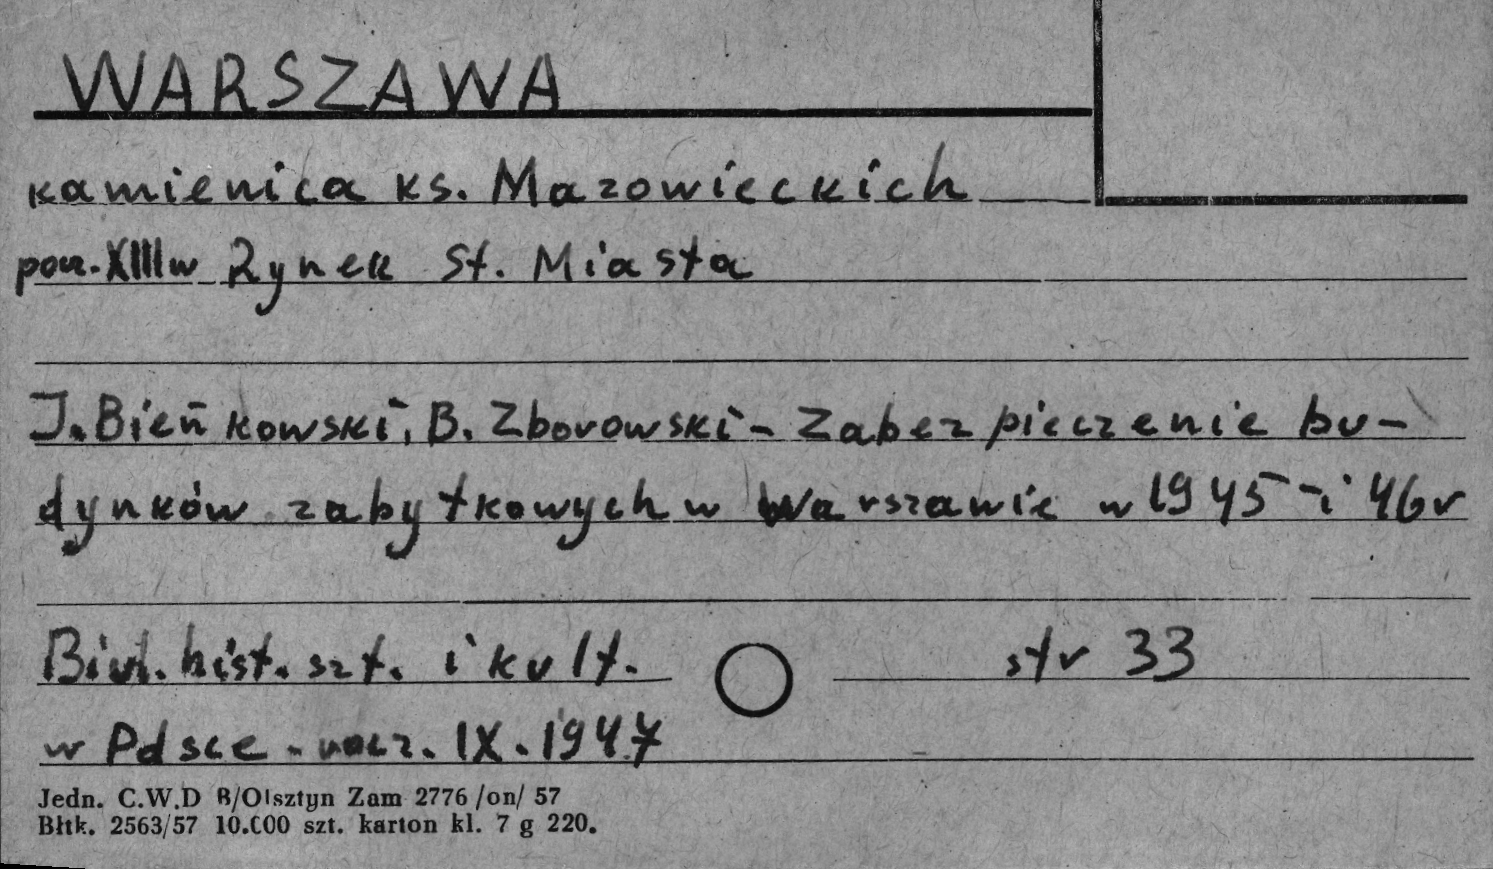 WARSZAWA
kamienica ks. Mazowieckich
pocz. XIII w Rynek St. Miasta
J. Bieńkowski, B. Zborowski - Zabezpieczenie bu-
dynków zabytkowych w Warszawie w 1945 i 46 r
Biul. hist. szt. i kult.
str 33
w Polsce - rocz. IX. 1947
Jedn. C.W.D B/Olsztyn Zam 2776 /on/ 57
Błtk. 2563/57 10.000 szt. karton kl. 7 g 220.